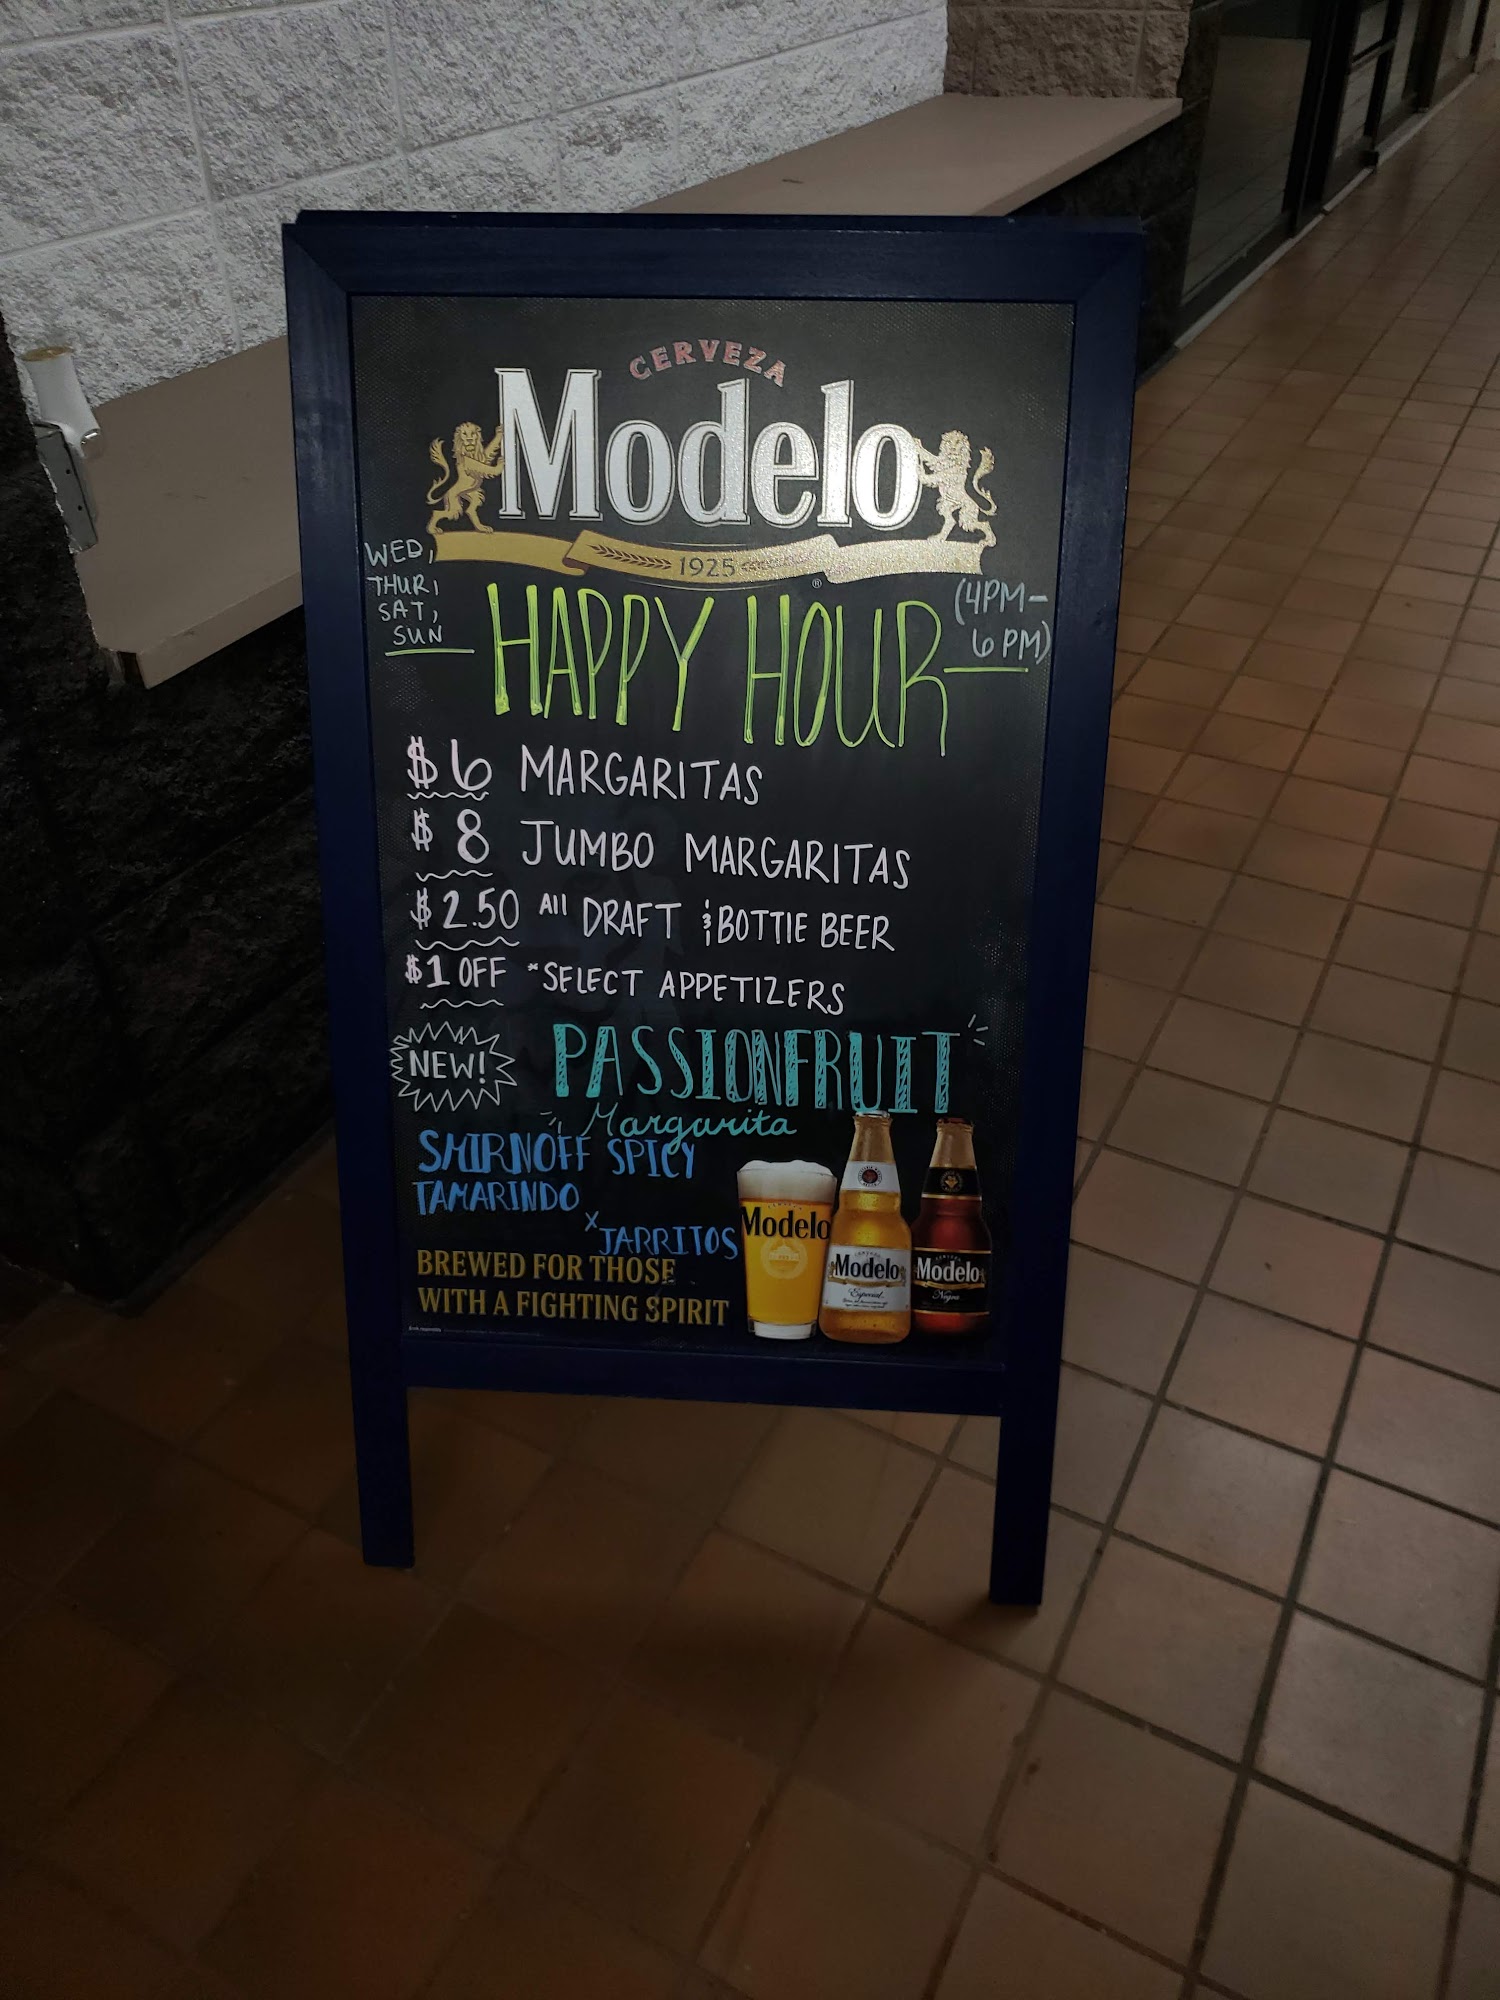 CERVEZA
Modelo
1925
®
WED,
THUR,
SAT,
SUN
HAPPY HOUR
(4PM-
6PM)
$6 MARGARITAS
$8 JUMBO MARGARITAS
$2.50 All DRAFT & BOTTlE BEER
$1 OFF *SELECT APPETIZERS
NEW!
PASSIONFRUIT
Margarita
SMIRNOFF SPICY
TAMARINDO
x JARRITOS
BREWED FOR THOSE
WITH A FIGHTING SPIRIT
Modelo
Modelo
Especial
Modelo
Negra